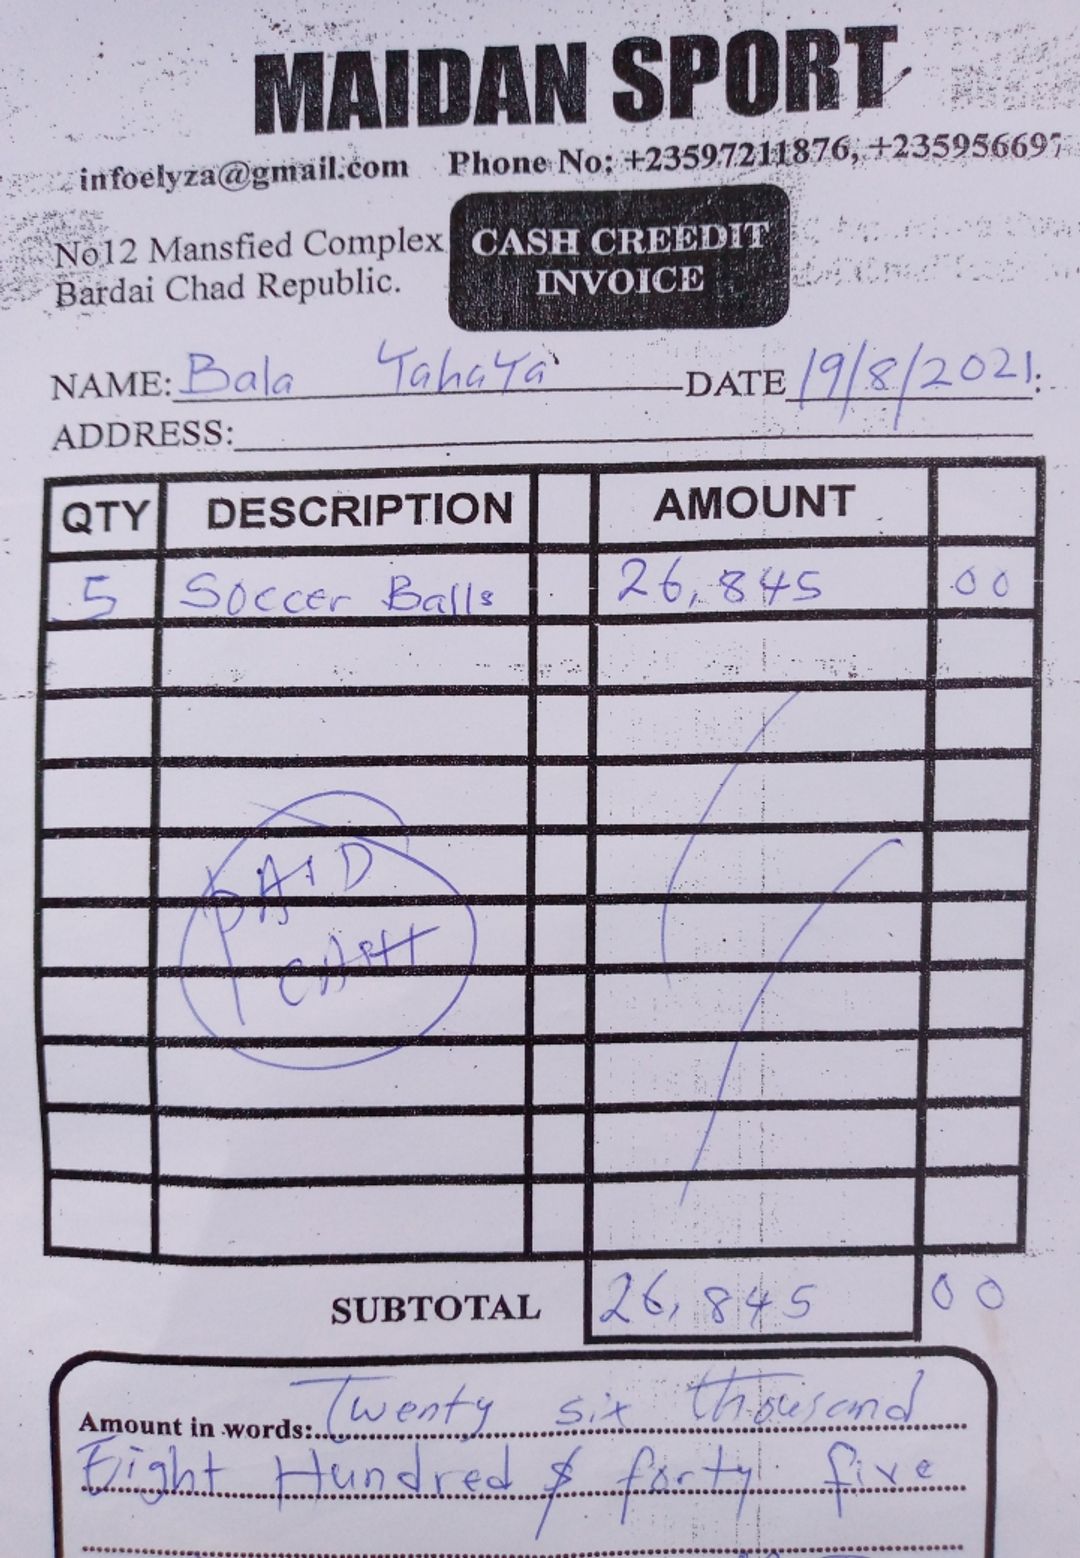 MAIDAN SPORT
infoelyza@gmail.com Phone No: +23597211876, +235956697
No12 Mansfied Complex
Bardai Chad Republic.
CASH CREEDIT
INVOICE
NAME: Bala Yahaya DATE 19/8/2021
ADDRESS:
QTY DESCRIPTION AMOUNT
5 Soccer Balls 26,845 00
PAID
CASH
SUBTOTAL 26,845 00
Amount in words: Twenty six thousand
Eight Hundred & forty five